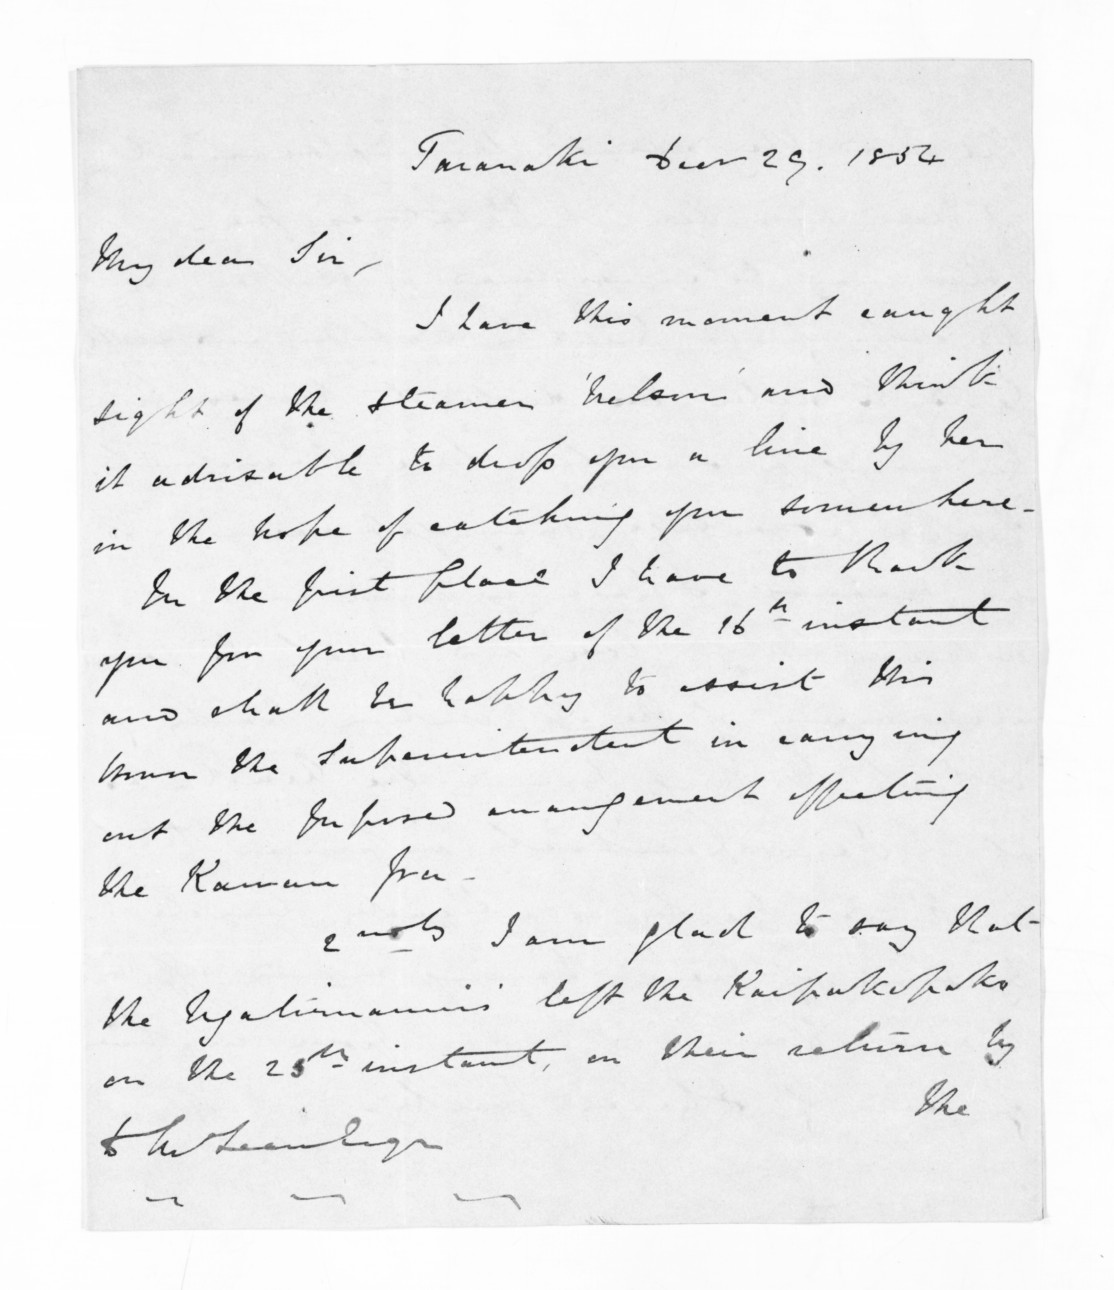 Taranaki Decr 29. 1854
My dear Sir,
I have this moment caught
sight of the steamer 'Nelson' and think
it advisable to drop you a line by her
in the hope of catching you somewhere -
In the first place I have to thank
you for your letter of the 16th instant
and shall be happy to assist this
the Superintendent in carrying
out the proposed arrangement affecting
the Kawau pa -
2ndly I am glad to say that
the Ngatimaniu's left the Kaipakopako
on the 25th instant, on their return by
the
D McLean Esqr